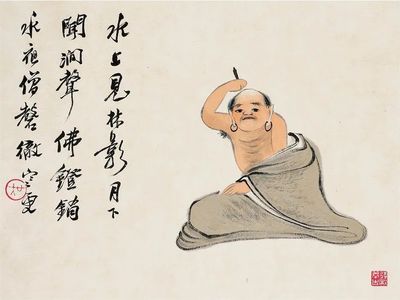 水上見林影月下
聞澗聲佛鐙銷
永夜僧磬徹寒更